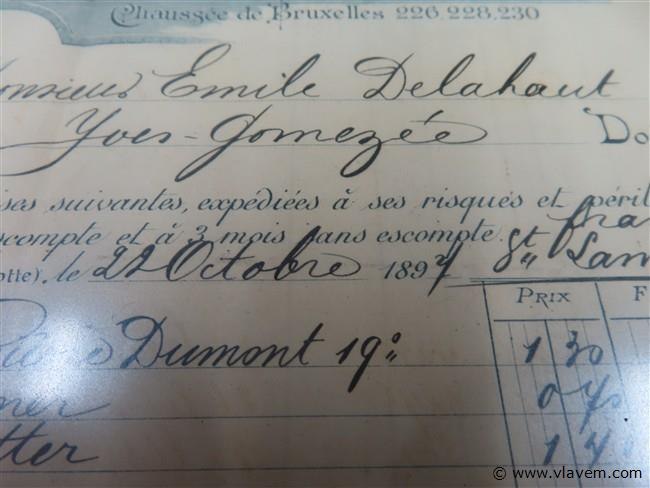 Chaussée de Bruxelles 226, 228, 230
onsieur Emile Delahaut
Yves-Gomezée Do
ses suivantes, expédiées à ses risques et péril
scompte et à 3 mois sans escompte.
otte), le 22 Octobre 1897
PRIX F
Dumont 19° 1 30
ner 0
tter 1
© www.vlavem.com